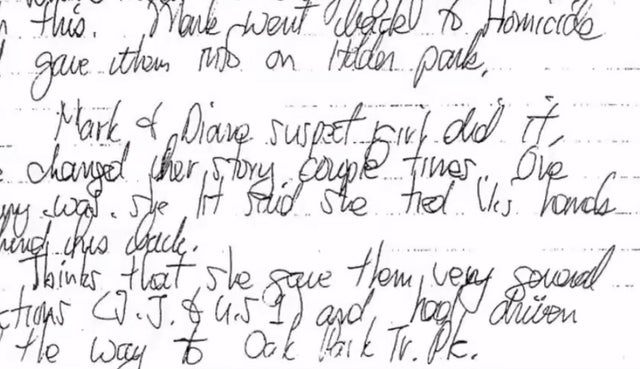 this. Mark went back to Homicide
gave them info on Hidden park.
Mark & Diane suspect girl did it,
changed her story couple times. One
way was she 1st said she tied Vic's hands
behind his back.
Thinks that she gave them very general
ctions (J.J. & U.S 1) and had driven
the way to Oak Park Tr. Pk.